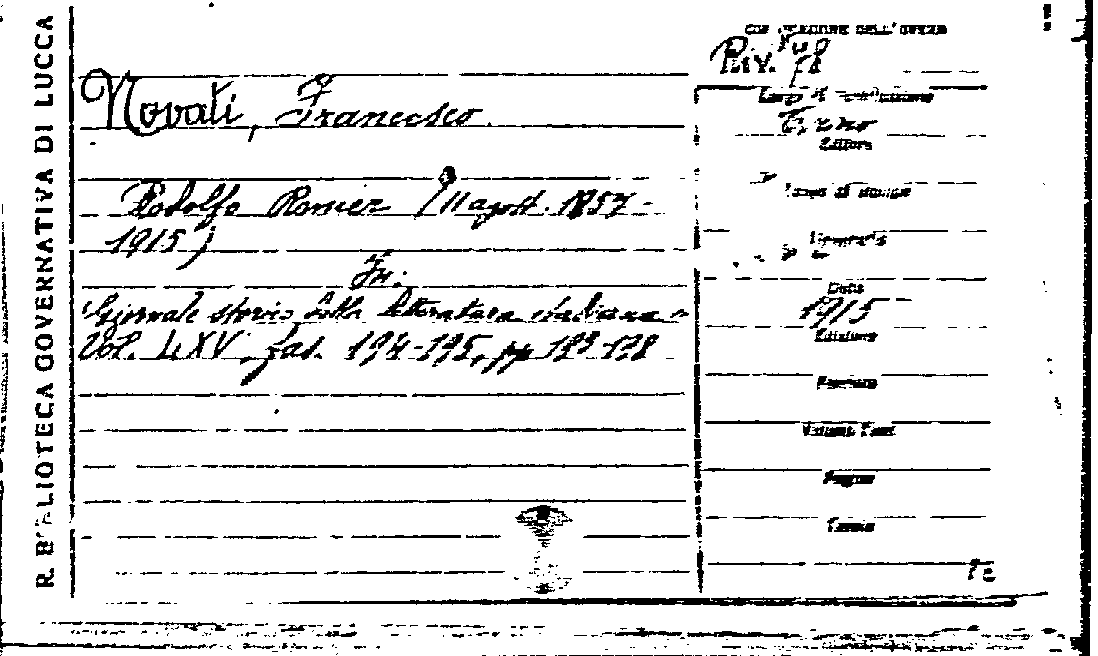 R. BIBLIOTECA GOVERNATIVA DI LUCCA
COLLOCAZIONE DELL'OPERA
Riv. 78
Novati, Francesco.
Rodolfo Renier (11 agost. 1857-
1915)
In:
Giornale storico della letteratura italiana
Vol. LXV, fas. 194-195, pp
Luogo di pubblicazione
Torino
Editore
Luogo di stampa
Tipografia
Data
1915
Edizione
Formato
Volumi
Pagine
Tavole